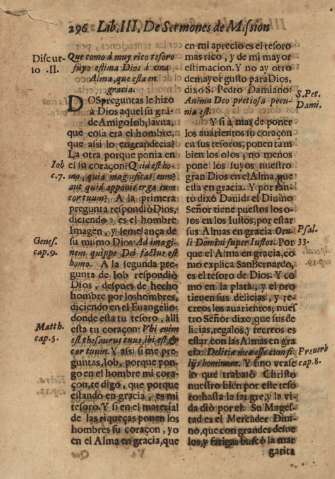 296 Lib. III, De Sermones de Mission
Discur
so II.
Que como à muy rico tesoro
suyo estima Dios à una
Alma, que està en
gracia.
DOS preguntas le hizo
à Dios aquel su grã
de Amigo Iob, la vna,
que cosa era el hombre,
que assi lo engrandecia?
La otra porque ponia en
el su coraçon? Quid est ho-
mo, quia magnificas eum?
aut quid apponis erga eum
cor tuum? A la primera
pregunta respondiò Dios,
diciendo: es el hombre
Imagen, y semejança de
su mismo Dios: Ad imagi-
nem, quippe Dei factus est
homo. A la segunda pre-
gunta de Iob respondiò
Dios, despues de hecho
hombre por los hombres,
diciendo en el Evangelio:
donde esta tu tesoro, alli
esta tu coraçon: Vbi enim
est thesaurus tuus, ibi est &
cor tuum. Y assi si me pre-
guntas, Iob, porque pon-
go en el hombre mi cora-
çon, te digo, que porque
estando en gracia, es mi
tesoro. Y si en el material
de las riqueças ponen los
hombres su coraçon, yo
en el Alma en gracia, que
Iob
c. 7.
Genes.
cap. 9.
Matth.
cap. 5.
en mi aprecio es el tesoro
mas rico, y de mi mayor
estimacion. Y no ay otro
de mayor gusto para Dios,
dixo S. Pedro Damiano:
Anima Deo pretiosa pecu-
nia est.
Y si à mas de poner
los avarientos su coraçon
en sus tesoros, ponen tam
bien los ojos, no menos
pone los suyos nuestro
gran Dios en el Alma, que
esta en gracia. Y por tan-
to dixo David: el Divino
Señor tiene puestos los o-
jos en los Iustos, por estar
sus Almas en gracia: Ocu-
li Domini super Iustos. Por
que el Alma en gracia, co-
mo explica San Bernardo,
es el tesoro de Dios. Y co
mo en la plata, y el oro
tienen sus delicias, y re-
creos los avarientos; nues
tro Señor dixo; que sus de
licias, regalos, y recreos es
estar con las Almas en gra
cia: Deliciæ meæ esse cum fi-
lijs hominum. Y sino vease
lo que trabajò Christo
nuestro bien por este teso
ro hasta la sangre, y la vi-
da diò por el. Su Mages-
tad es el Mercader Divi-
no, que con grandes desve
los, y fatigas buscò la mar
garita
S. Pet.
Dami.
Psal.
33.
Proverb
cap. 8.